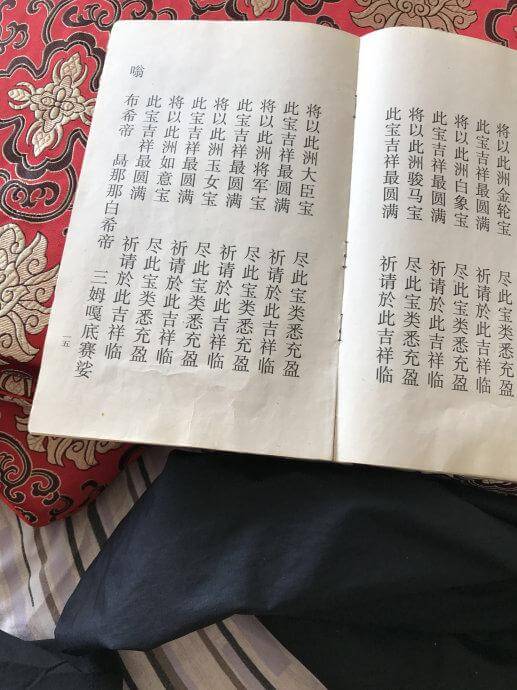 将以此洲金轮宝 尽此宝类悉充盈
此宝吉祥最圆满 祈请於此吉祥临
将以此洲白象宝 尽此宝类悉充盈
此宝吉祥最圆满 祈请於此吉祥临
将以此洲骏马宝 尽此宝类悉充盈
此宝吉祥最圆满 祈请於此吉祥临
将以此洲大臣宝 尽此宝类悉充盈
此宝吉祥最圆满 祈请於此吉祥临
将以此洲将军宝 尽此宝类悉充盈
此宝吉祥最圆满 祈请於此吉祥临
将以此洲玉女宝 尽此宝类悉充盈
此宝吉祥最圆满 祈请於此吉祥临
将以此洲如意宝 尽此宝类悉充盈
此宝吉祥最圆满 祈请於此吉祥临
嗡 布希帝 晶那那白希帝 三姆嘎底赛娑
一五